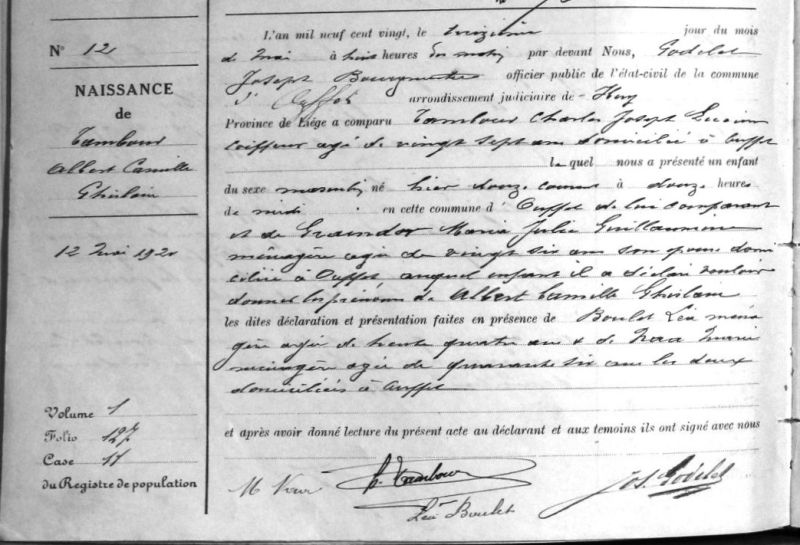 N° 12
NAISSANCE
de
Tambour
Albert Camille
Ghislain
12 Mai 1920
Volume 1
Folio 127
Case 11
du Registre de population
L'an mil neuf cent vingt, le treizième jour du mois
de Mai à huit heures du matin par devant Nous, Godelet
Joseph Bourgmestre officier public de l'état-civil de la commune
d'Ouffet arrondissement judiciaire de Huy
Province de Liége a comparu Tambour Charles Joseph Lucien
coiffeur agé de vingt sept ans domicilié à Ouffet
lequel nous a présenté un enfant
du sexe masculin né hier douze courant à douze heures
de midi en cette commune d'Ouffet de lui comparant
et de Graindor Maria Julie Guillaumine
ménagère agée de vingt six ans son épouse domi
ciliée à Ouffet auquel enfant il a déclaré vouloir
donner les prénoms de Albert Camille Ghislain
les dites déclaration et présentation faites en présence de Boulet Léa ména
gère agée de trente quatre ans et de Marie
ménagère agée de quarante six ans les deux
domiciliées à Ouffet
et après avoir donné lecture du présent acte au déclarant et aux temoins ils ont signé avec nous
M Tambour Jos. Godelet
Léa Boulet